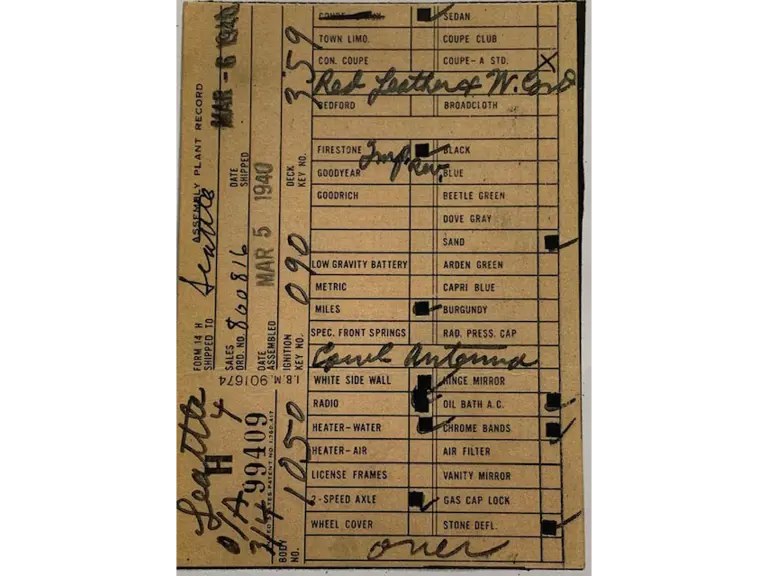 ASSEMBLY PLANT RECORD
FORM 14 H
SHIPPED TO Seattle
MAR - 6 1940
SALES ORD. NO. 860816
DATE SHIPPED
DATE ASSEMBLED MAR 5 1940
IGNITION KEY NO. 090
DECK KEY NO. 359
I.B.M. 901674
Seattle
H 4
99409
BODY NO. 1050
SEDAN
TOWN LIMO. COUPE CLUB
CON. COUPE COUPE-A STD. X
Red Leather & W. Cord
BEDFORD BROADCLOTH
FIRESTONE BLACK
GOODYEAR BLUE
GOODRICH BEETLE GREEN
DOVE GRAY
SAND
LOW GRAVITY BATTERY ARDEN GREEN
METRIC CAPRI BLUE
MILES BURGUNDY
SPEC. FRONT SPRINGS RAD. PRESS. CAP
Cowl Antenna
WHITE SIDE WALL HINGE MIRROR
RADIO OIL BATH A.C.
HEATER-WATER CHROME BANDS
HEATER-AIR AIR FILTER
LICENSE FRAMES VANITY MIRROR
2-SPEED AXLE GAS CAP LOCK
WHEEL COVER STONE DEFL.
over